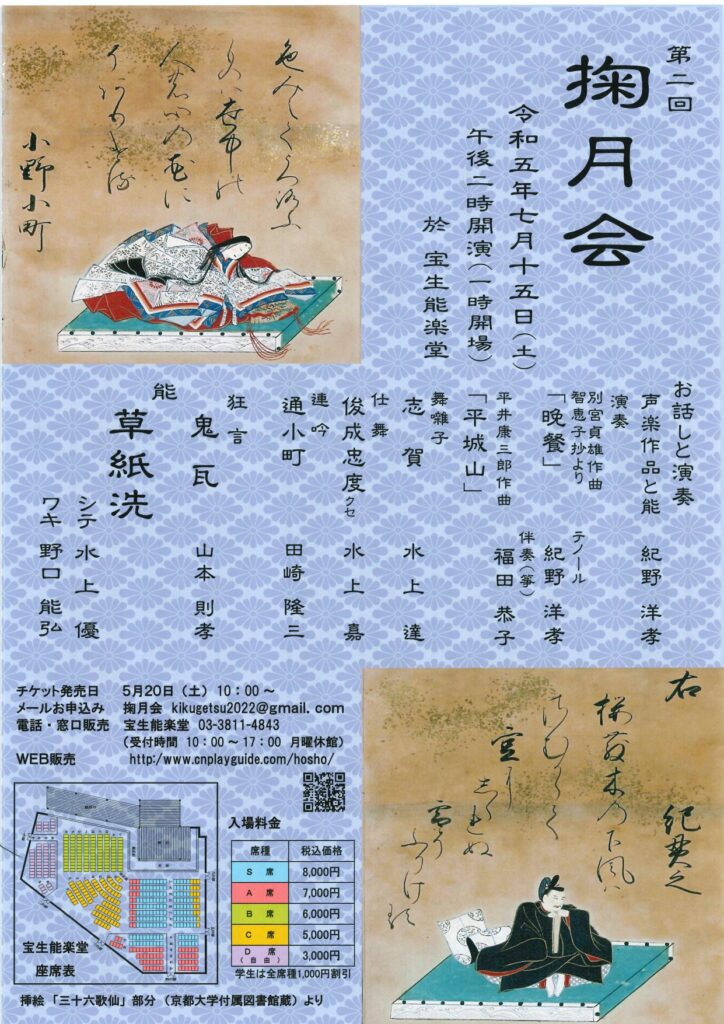 第二回
掬月会
令和五年七月十五日(土)
午後二時開演(一時開場)
於 宝生能楽堂
小野小町
お話しと演奏
声楽作品と能 紀野 洋孝
演奏
別宮貞雄作曲
智恵子抄より
「晩餐」 テノール 紀野 洋孝
平井康三郎作曲
「平城山」 伴奏(箏) 福田 恭子
舞囃子
志賀 水上 達
仕舞
俊成忠度クセ 水上 嘉
連吟
通小町 田崎 隆三
狂言
鬼瓦 山本 則孝
能
草紙洗
シテ 水上 優
ワキ 野口 能弘
チケット発売日 5月20日(土)10:00~
メールお申込み 掬月会 kikugetsu2022@gmail.com
電話・窓口販売 宝生能楽堂 03-3811-4843
(受付時間 10:00~17:00 月曜休館)
WEB販売 http:/www.cnplayguide.com/hosho/
入場料金
席種 税込価格
S 席 8,000円
A 席 7,000円
B 席 6,000円
C 席 5,000円
D 席(自由) 3,000円
学生は全席種1,000円割引
宝生能楽堂
座席表
挿絵「三十六歌仙」部分(京都大学付属図書館蔵)より
右 紀貫之